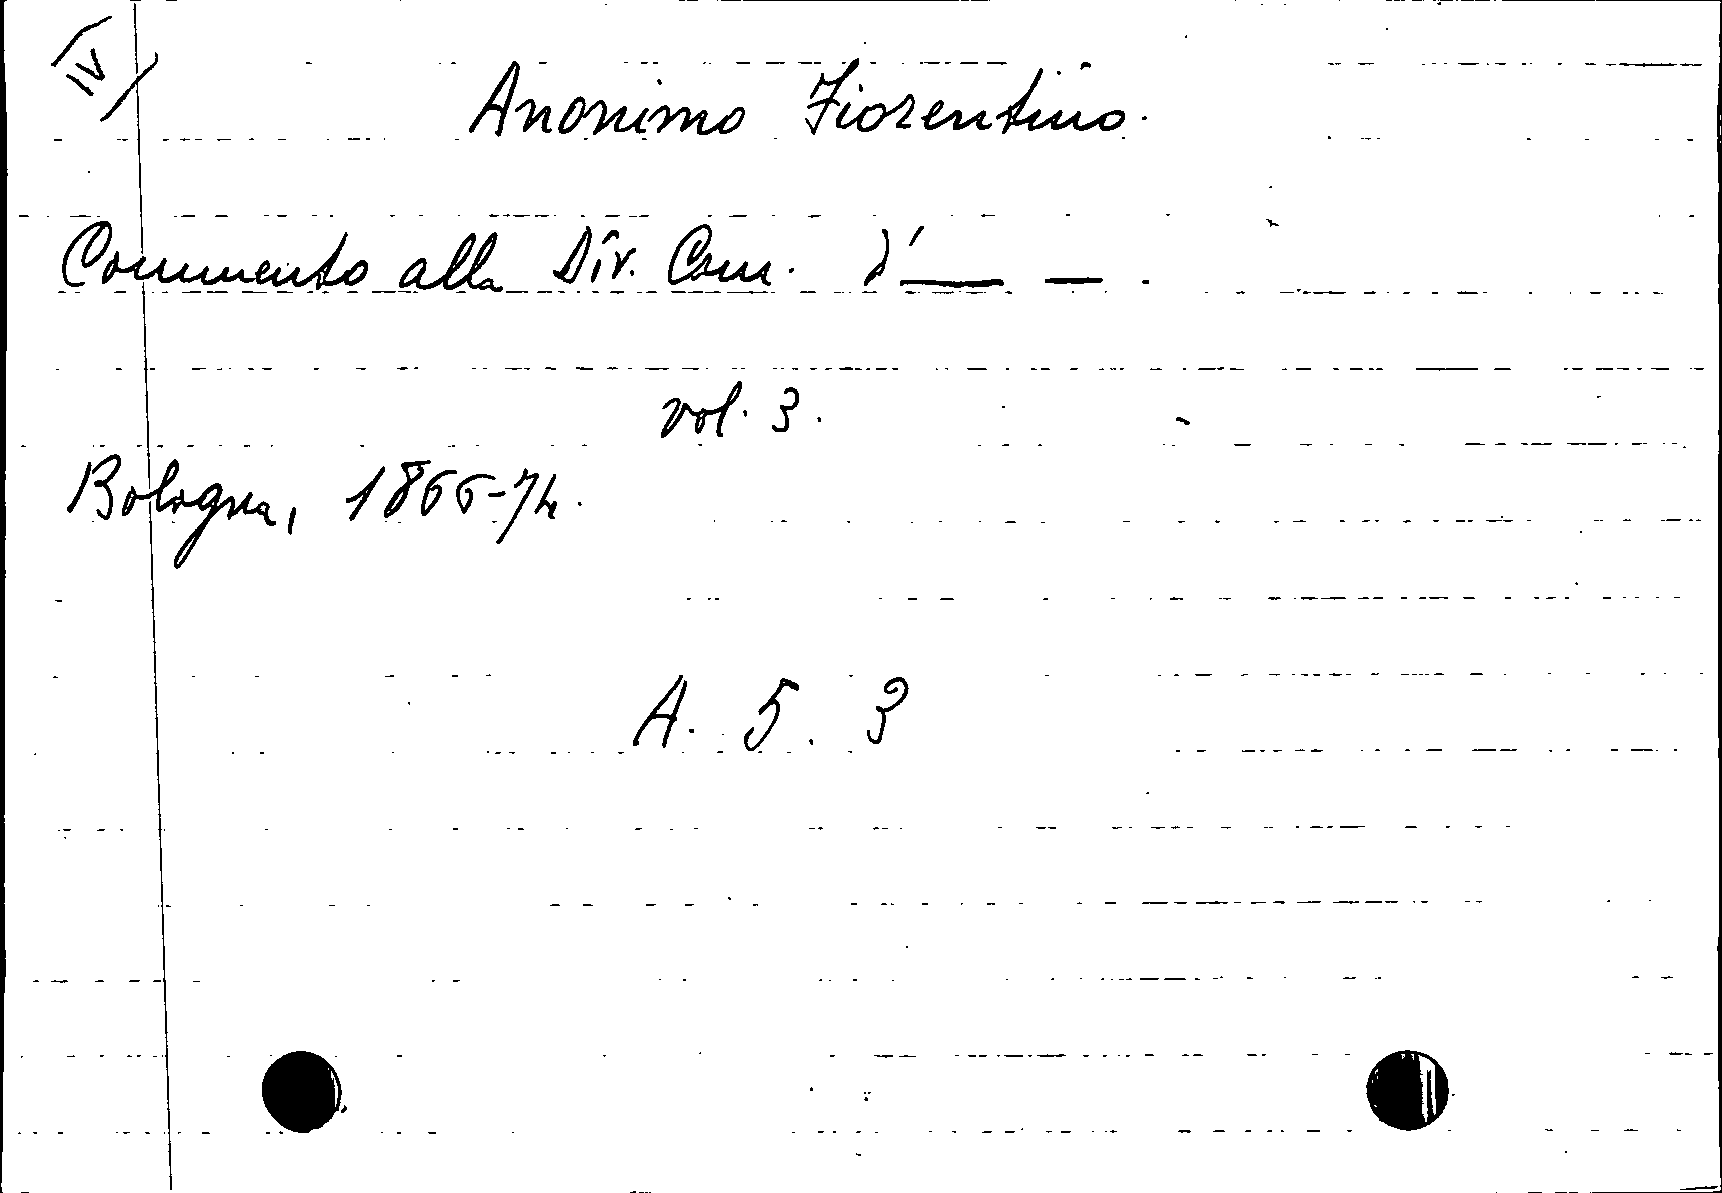 IV
Anonimo Fiorentino.
Commento alla Div. Com. d'— —.
vol. 3.
Bologna, 1866-74.
A. 5. 3